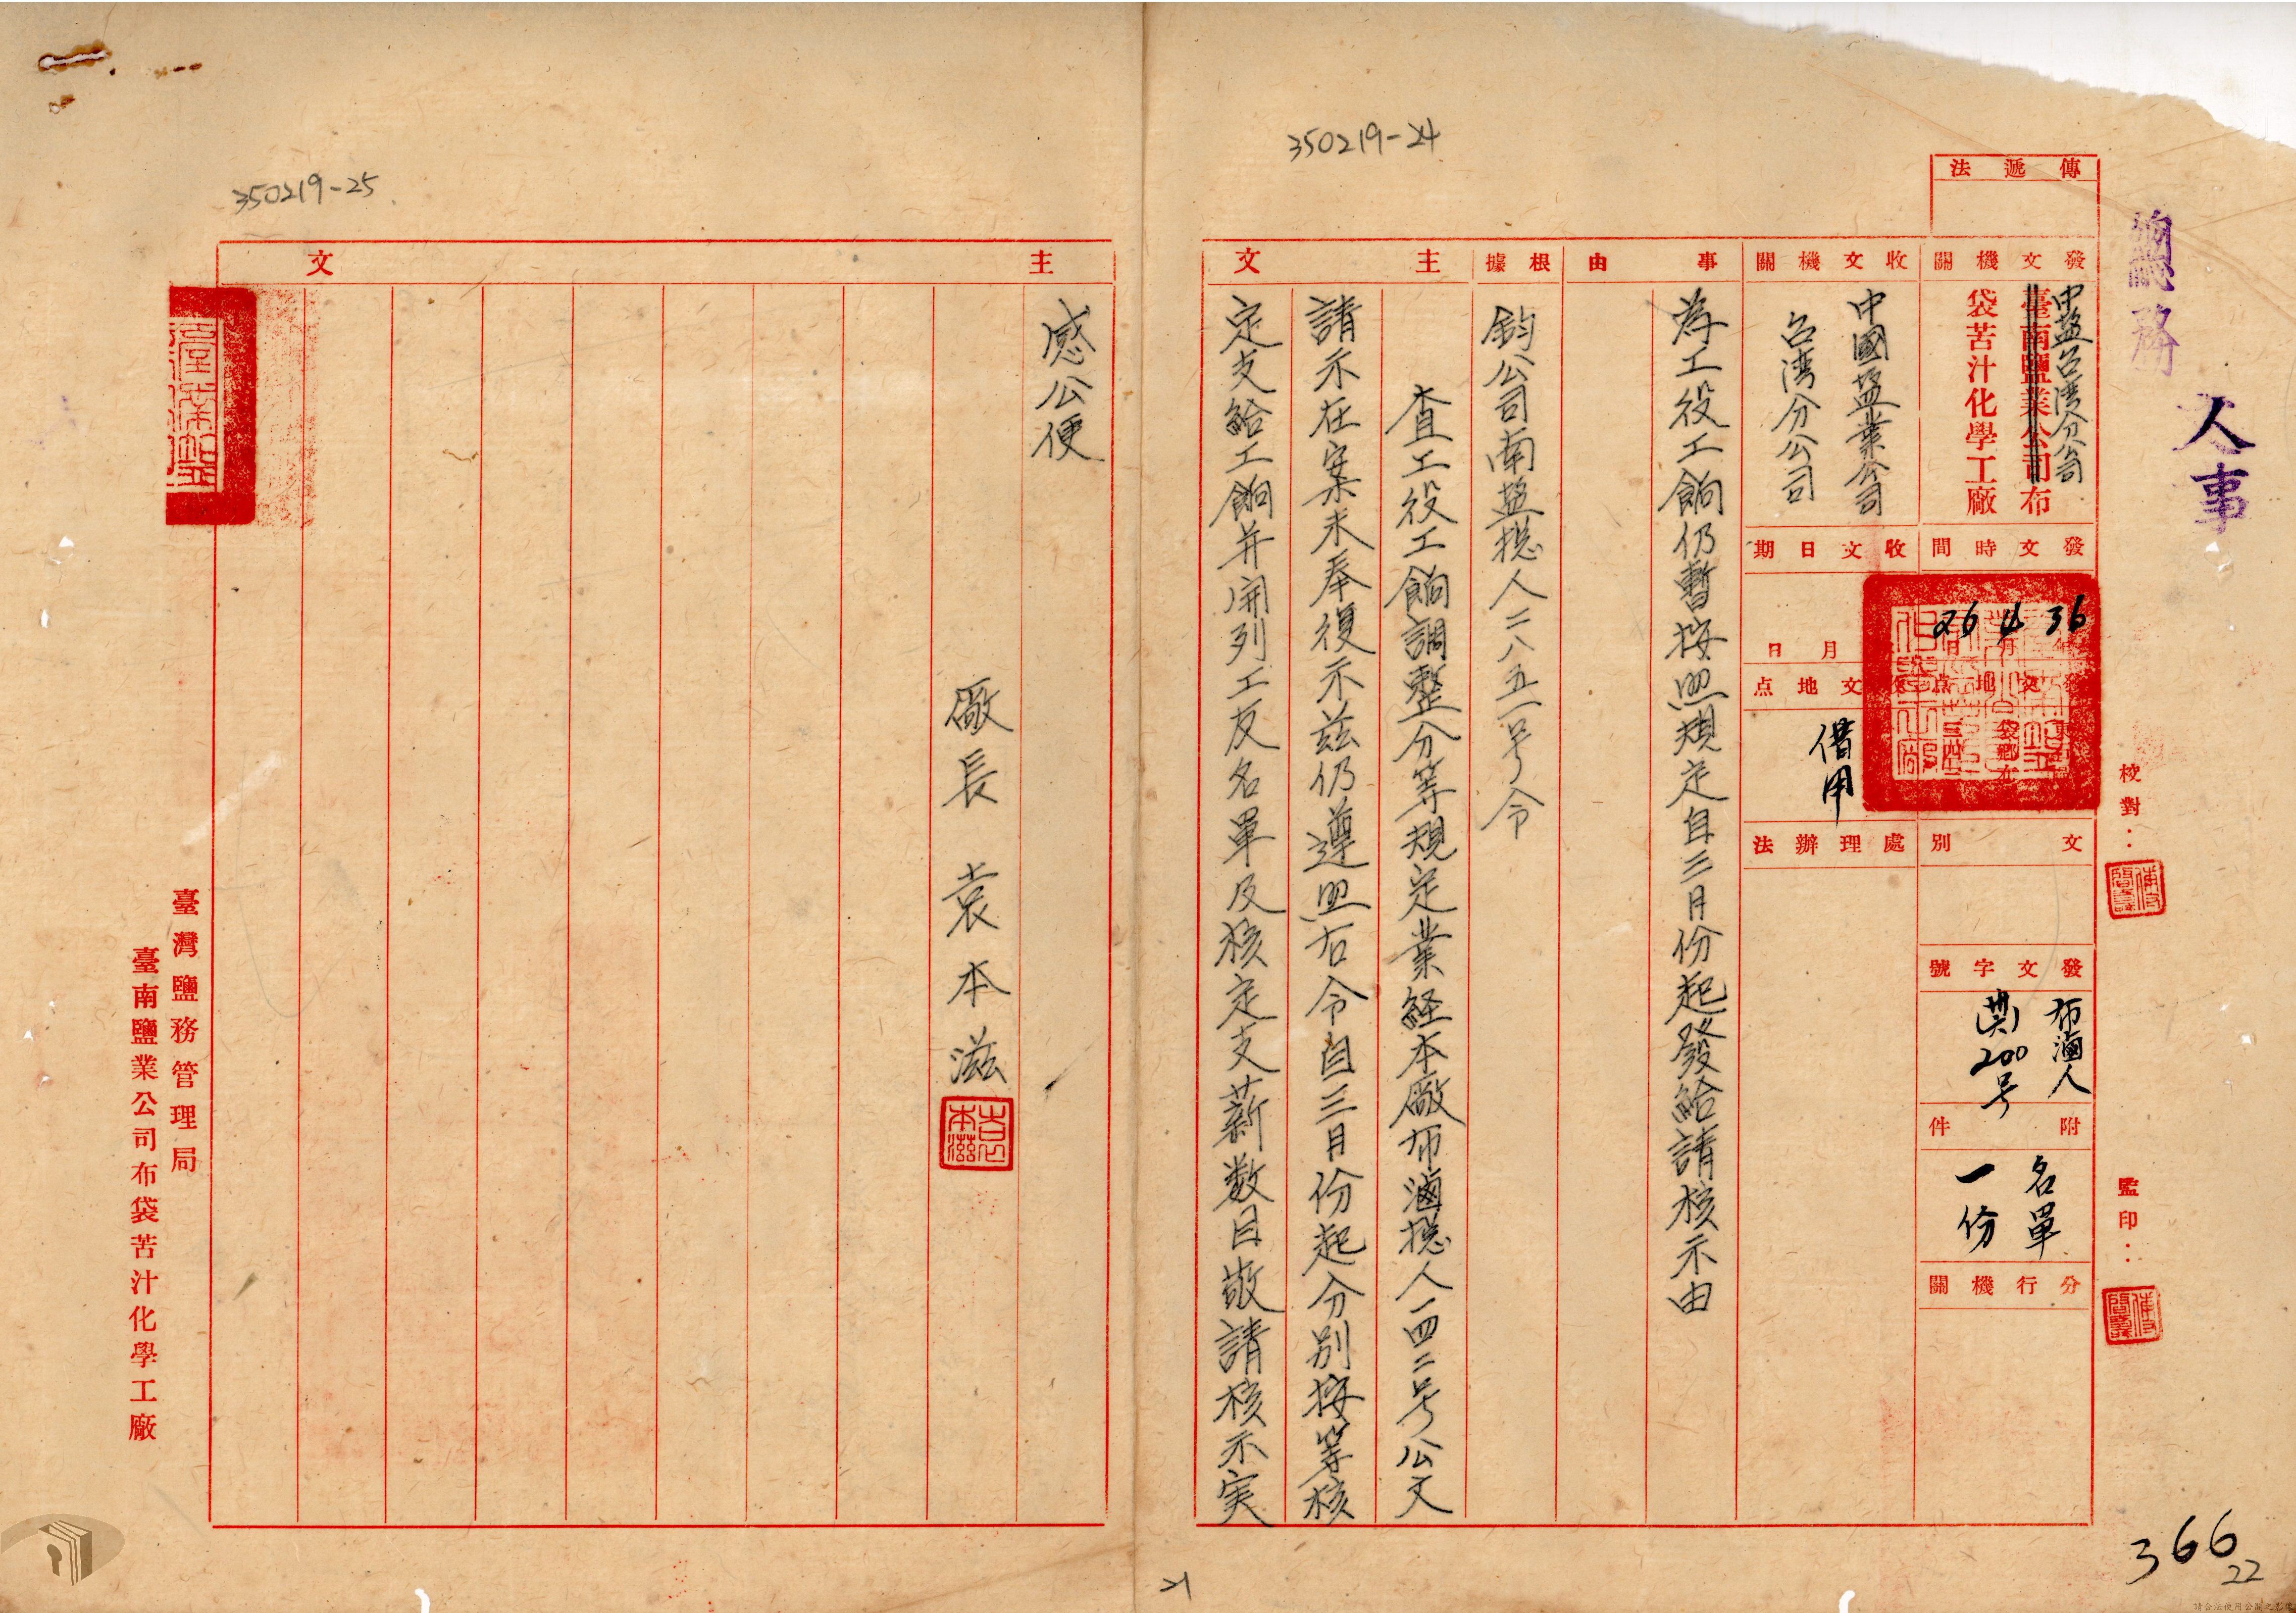 350219-24
350219-25
總務
人事
傳遞法
發文機關
中盐台湾分公司
臺南鹽業公司布
袋苦汁化學工廠
發文時間
36 4 26
文別
發文字號
布滷人
200号
附件
名單
一份
分行機關
收文機關
中國盐業公司
台湾分公司
收文日期
月日
收文地点
借用
處理辦法
事由
為工役工餉仍暫按照規定自三月份起發給請核示由
根據
鈞公司南盐總人二八五一号令
主文
查工役工餉調整分等規定業経本廠布滷總人一四二号公文
請示在案未奉復示茲仍遵照右令自三月份起分別按等核
定支給工餉并開列工友名單及核定支薪数目敬請核示実
主文
感公便
廠長 袁本滋
袁本滋
校對：
監印：
臺灣鹽務管理局
臺南鹽業公司布袋苦汁化學工廠
366
22
21
請合法使用公開之影像